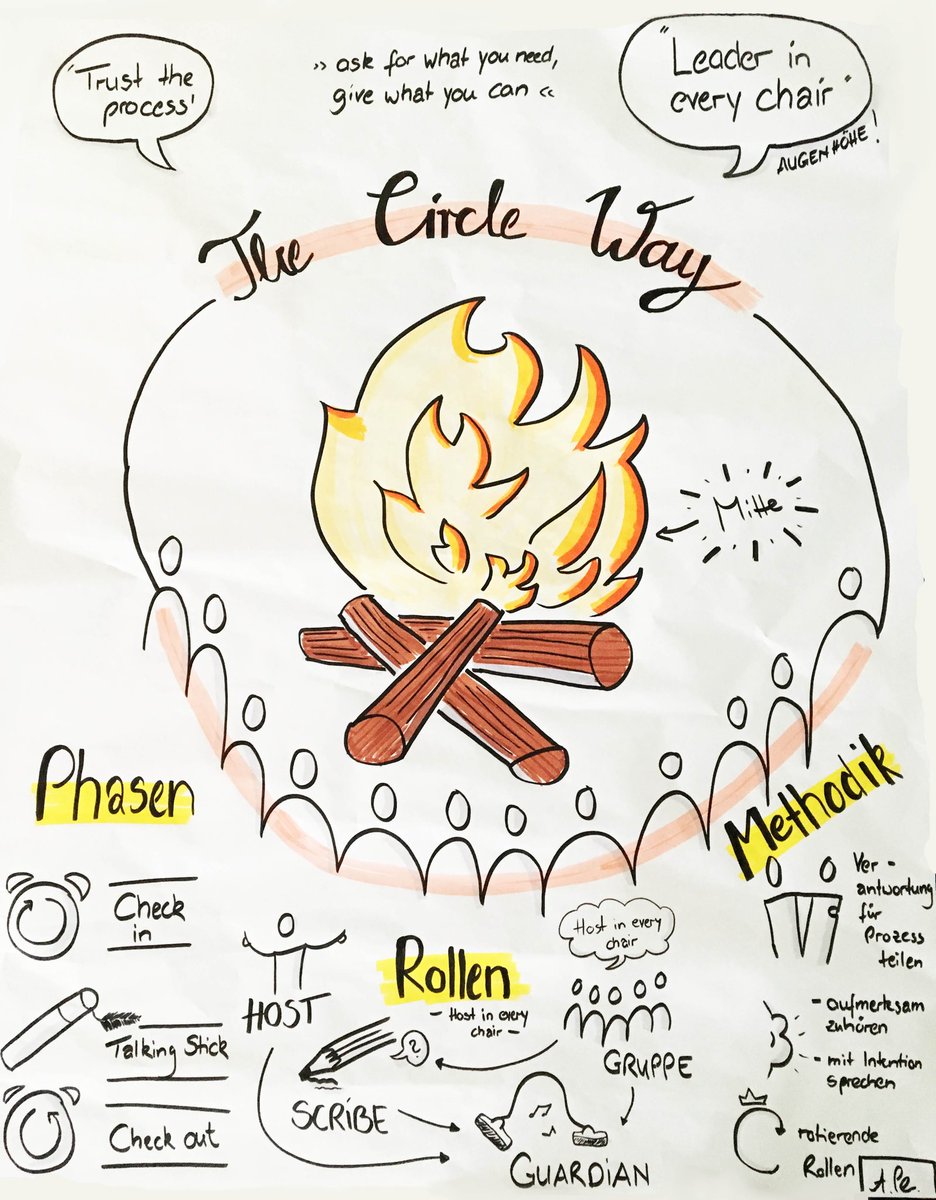 "Trust the
process'
» ask for what you need,
give what you can «
"Leader in
every chair"
AUGENHÖHE!
The Circle Way
Mitte
Phasen
Check
in
Talking Stick
Check out
HOST
Rollen
- Host in every
chair -
Host in every
chair
GRUPPE
?
SCRIBE
GUARDIAN
Methodik
Ver-
antwortung
für
Prozess
teilen
- aufmerksam
zuhören
- mit Intention
sprechen
rotierende
Rollen